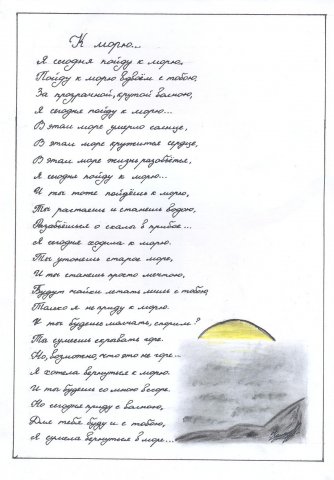 К морю...
Я сегодня пойду к морю,
Пойду к морю вдвоём с тобою,
За прозрачной, крутой волною,
Я сегодня пойду к морю...
В этом море умерло солнце,
В этом море кружится сердце,
В этом море жизнь разобьётся,
Я сегодня пойду к морю...
И ты тоже пойдёшь к морю,
Ты растаешь и станешь водою,
Разобьёшься о скалы в прибое...
Я сегодня ходила к морю.
Ты утонешь старое море,
И ты станешь просто мечтою,
Будут чайки летать лишь с тобою,
Только я не приду к морю.
И ты будешь молчать, спорим?
Ты сумеешь скрывать горе.
Но, возможно, что это не горе...
Я хотела вернуться к морю.
И ты будешь со мною в ссоре.
Но сегодня приду с волною,
Для тебя буду и с тобою,
Я сумела вернуться в море...